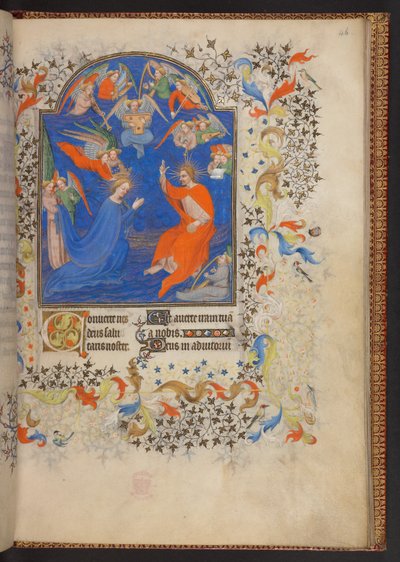 46
Convertenos
deus salu
tarisnoster.
Et auerte iram tuã
a nobis.
Deus in adiutoriũ